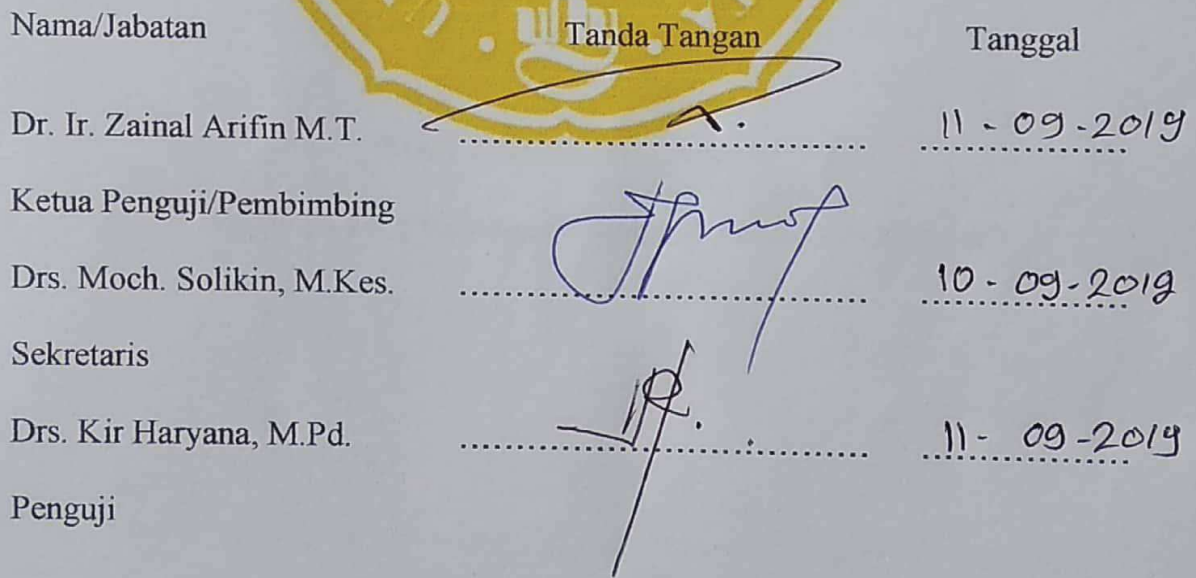 Nama/Jabatan Tanda Tangan Tanggal
Dr. Ir. Zainal Arifin M.T. 11 - 09 - 2019
Ketua Penguji/Pembimbing
Drs. Moch. Solikin, M.Kes. 10 - 09 - 2019
Sekretaris
Drs. Kir Haryana, M.Pd. 11 - 09 - 2019
Penguji